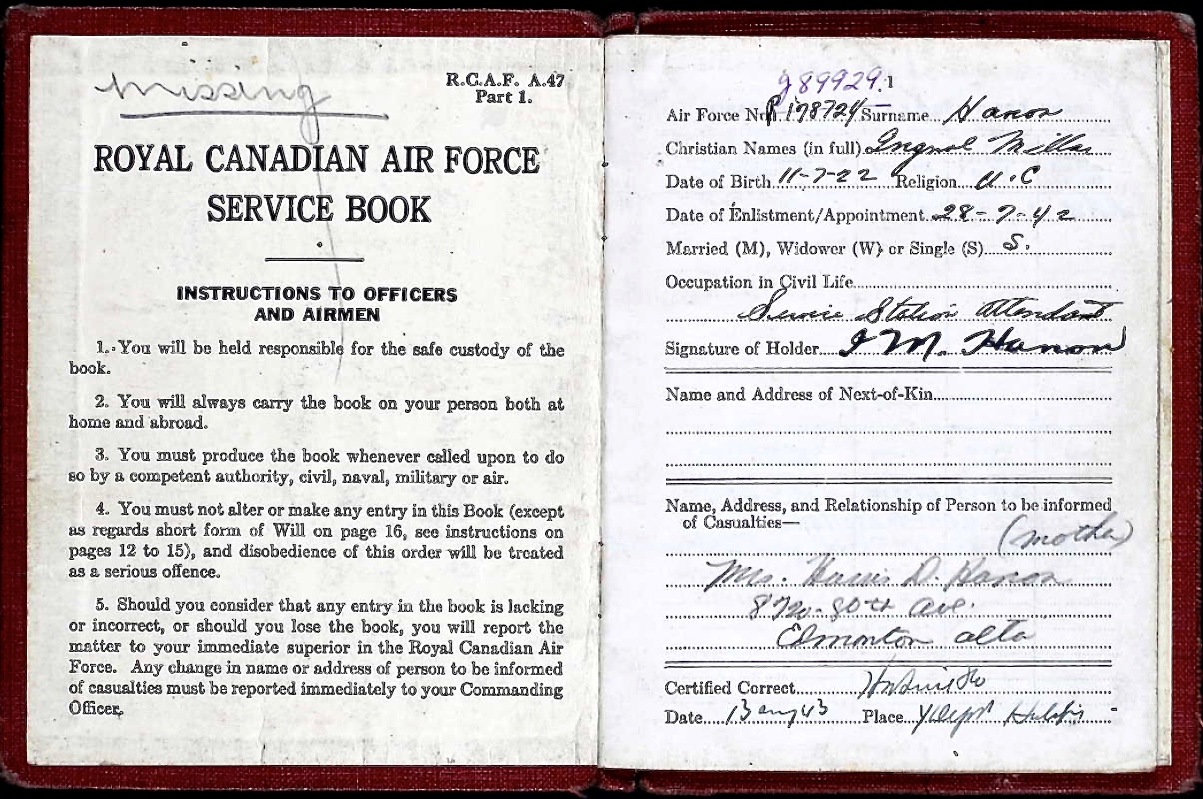 missing
R.C.A.F. A.47
Part 1.
ROYAL CANADIAN AIR FORCE
SERVICE BOOK
INSTRUCTIONS TO OFFICERS
AND AIRMEN
1. You will be held responsible for the safe custody of the
book.
2. You will always carry the book on your person both at
home and abroad.
3. You must produce the book whenever called upon to do
so by a competent authority, civil, naval, military or air.
4. You must not alter or make any entry in this Book (except
as regards short form of Will on page 16, see instructions on
pages 12 to 15), and disobedience of this order will be treated
as a serious offence.
5. Should you consider that any entry in the book is lacking
or incorrect, or should you lose the book, you will report the
matter to your immediate superior in the Royal Canadian Air
Force. Any change in name or address of person to be informed
of casualties must be reported immediately to your Commanding
Officer.
J89929. 1
Air Force No. R178724 Surname Hanon
Christian Names (in full) Millar
Date of Birth 11-7-22 Religion U.C
Date of Enlistment/Appointment 28-7-42
Married (M), Widower (W) or Single (S) S.
Occupation in Civil Life
Service Station Attendant
Signature of Holder I M. Hanon
Name and Address of Next-of-Kin
Name, Address, and Relationship of Person to be informed
of Casualties—
(mother)
Mrs. D. Hanon
80th Ave.
Edmonton Alta
Certified Correct
Date 13 43 Place Y Dept Halifax